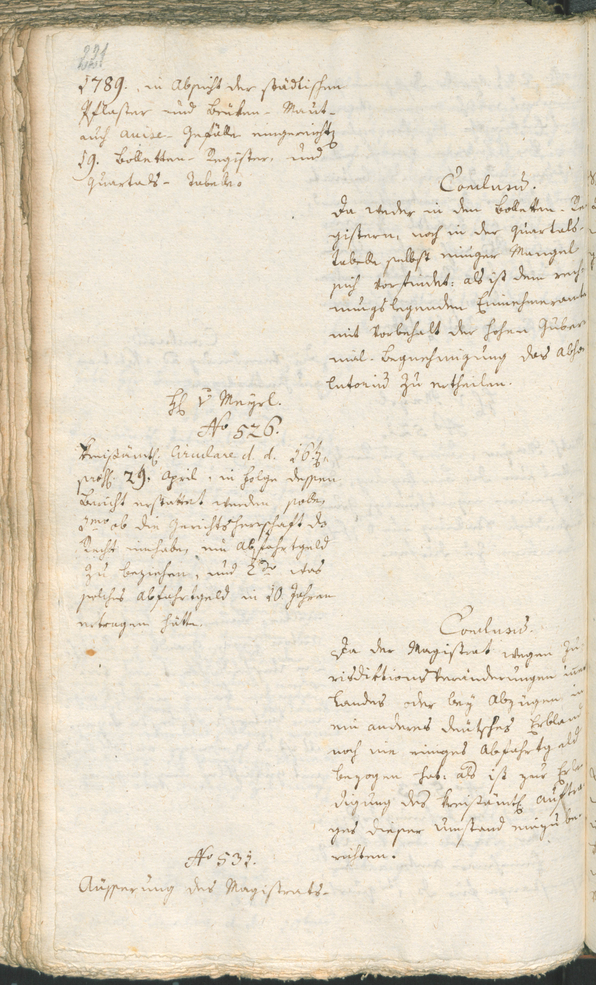 221
1789. in Absicht der städtischen
Pflaster und Brüken-Maut-
auch Avise-Gefälle eingereichte
19. Bolletten-Register, und
Quartals-Tabelle.
Conclusum.
Da weder in den Bolletten-Re-
gistern, noch in der Quartals-
tabelle selbst einiger Mangel
sich vorfindet: als ist dem rech-
nungslegenden Einnehmeramte
mit Vorbehalt der hohen Guber-
nial-Begnehmigung das Abso-
lutorium zu ertheilen.
H. v. Meyrl.
No 526.
Kreisämtl. Circulare d. d. 16t.
präs. 29. April, in Folge dessen
Bericht erstattet werden solle,
1mo ob die Gerichtsherrschaft das
Recht innhabe, ein Abfahrtgeld
zu beziehen, und 2do was
solches Abfahrtgeld in 10 Jahren
ertragen hätte.
Conclusum.
Da der Magistrat wegen Ju-
risdiktions Veränderungen inner
Landes oder bey Abzügen in
ein anderes deutsches Erbland
noch nie einiges Abfahrtgeld
bezogen hab: als ist zur Erle-
digung des kreisämtl. Auftra-
ges dieser Umstand einzube-
richten.
No 531.
Äusserung des Magistrats-